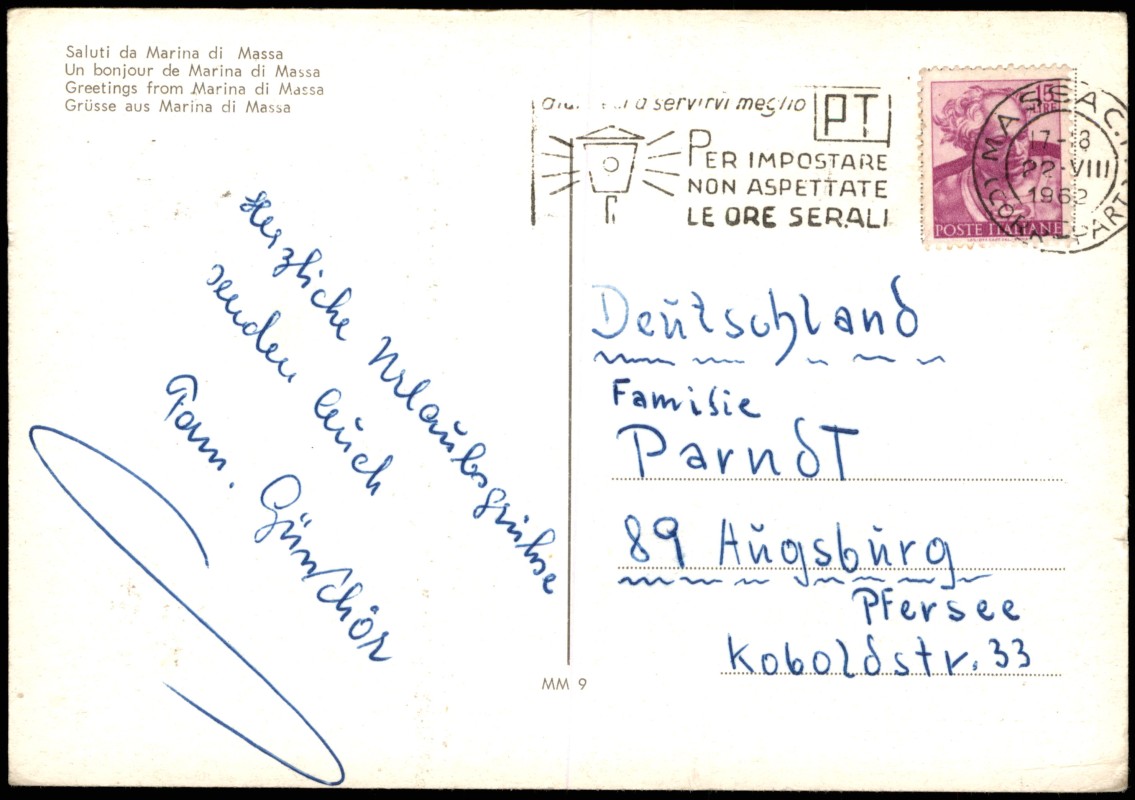 Saluti da Marina di Massa
Un bonjour de Marina di Massa
Greetings from Marina di Massa
Grüsse aus Marina di Massa
a servirvi meglio
PT
PER IMPOSTARE
NON ASPETTATE
LE ORE SERALI
15
LIRE
POSTE ITALIANE
MASSA C.
17-18
22-VIII
1962
Herzliche Urlaubsgrüße
senden Euch
Fam.
Deutschland
Familie
Parndt
89 Augsburg
Pfersee
Koboldstr. 33
MM 9